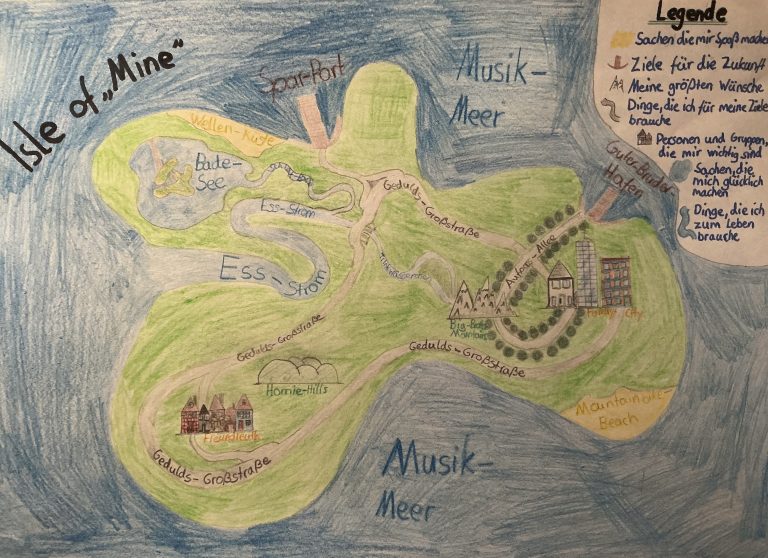 Isle of „Mine“
Spar-Port
Musik-
Meer
Legende
Sachen die mir Spaß machen
Ziele für die Zukunft
Meine größten Wünsche
Dinge, die ich für meine Ziele
brauche
Personen und Gruppen,
die mir wichtig sind
Sachen, die
mich glücklich
machen
Dinge, die ich
zum Leben
brauche
Wellen-Küste
Bade-
See
Ess-Strom
Gedulds-Großstraße
Hafen
Ess-Strom
Gedulds-Großstraße
Family City
Gedulds-Großstraße
Home-Hills
Mountain
Beach
Gedulds-Großstraße
Musik-
Meer